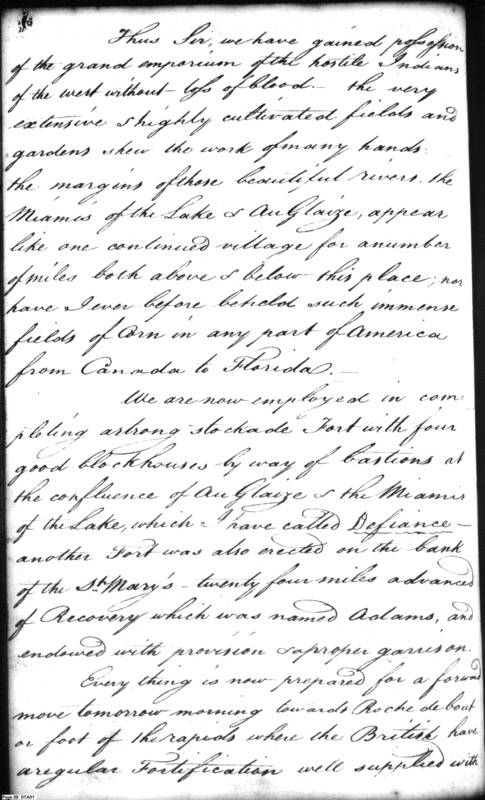 Thus Sir, we have gained possession
of the grand emporium of the hostile Indians
of the west without loss of blood. – the very
extensive & highly cultivated fields and
gardens shew the work of many hands:
the margins of those beautiful rivers, the
Miamis of the Lake & Au Glaize, appear
like one continued village for a number
of miles both above & below this place; nor
have I ever before beheld such immense
fields of Corn in any part of America
from Canada to Florida. –
We are now employed in com:
pleting a strong stockade Fort with four
good blockhouses by way of bastions at
the confluence of Au Glaize & the Miamis
of the Lake, which I have called Defiance –
another Fort was also erected on the bank
of the St. Mary's – twenty four miles advanced
of Recovery which was named Adams, and
endowed with provision & a proper garrison.
Every thing is now prepared for a forward
move tomorrow morning towards Roche de bout
or foot of the rapids where the British have
a regular Fortification well supplied with
Page 55 DTA01